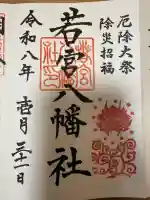 厄除大祭
除災招福
若宮八幡社
令和八年 壱月 三十一日